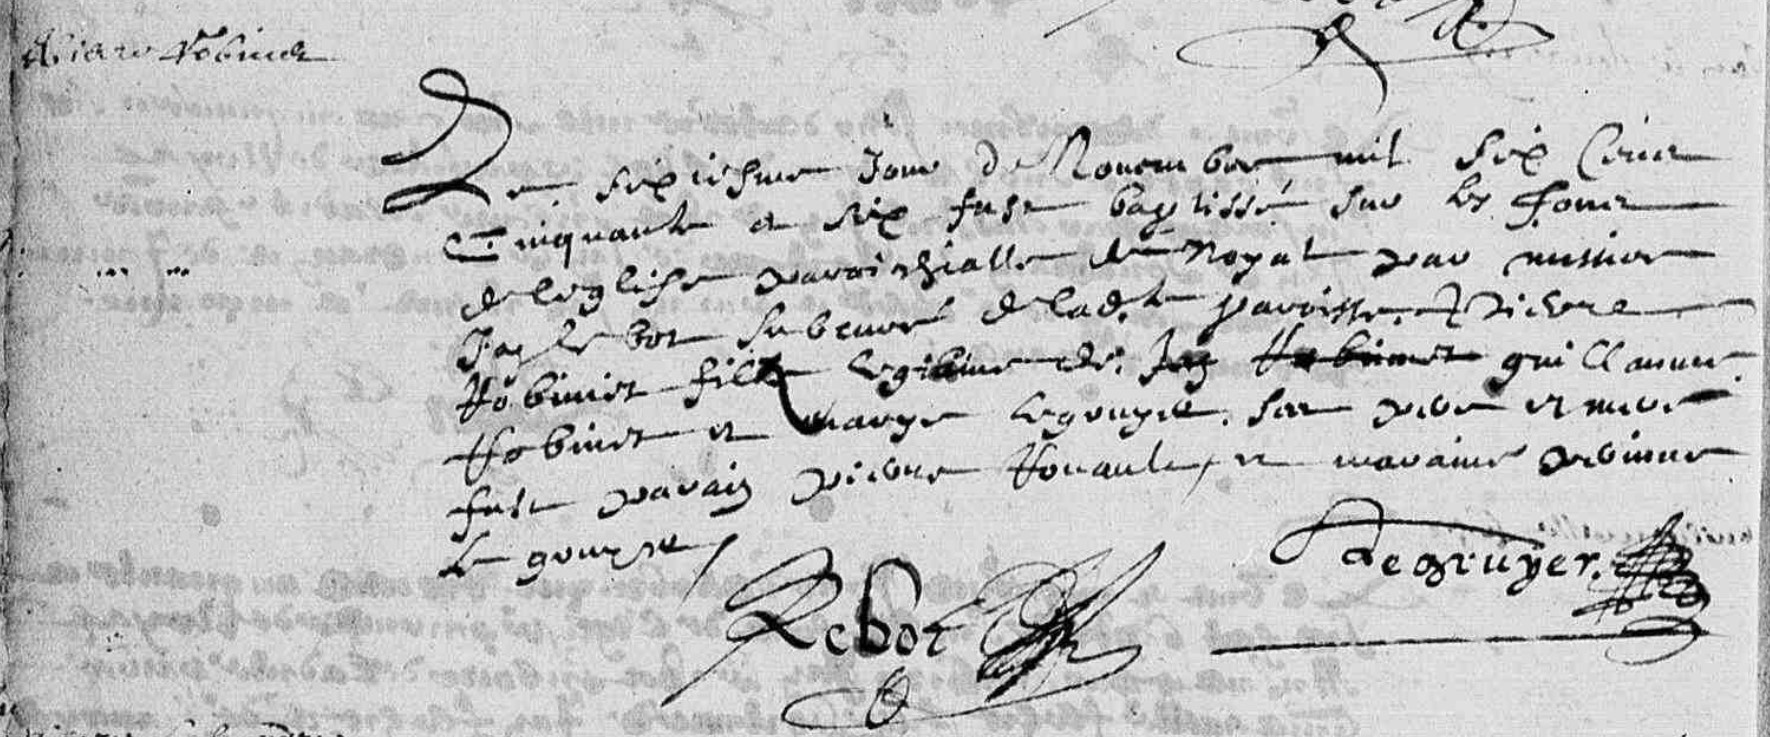 Pierre Robinet
Le sixiesme Jour de Novembre mil six Cent
Cinquante et six fust baptissé sur les fons
de leglise parroichialle de Noyal par missire
Jan le bot subcuré de lad.te paroisse. Pierre
Robinet fils legitime de Jan Robinet guillaume
Robinet et marye legruyer. ses pere et mere
fust parain pierre Houault, et maraine perinne
le gruyer
Lebot
Legruyer